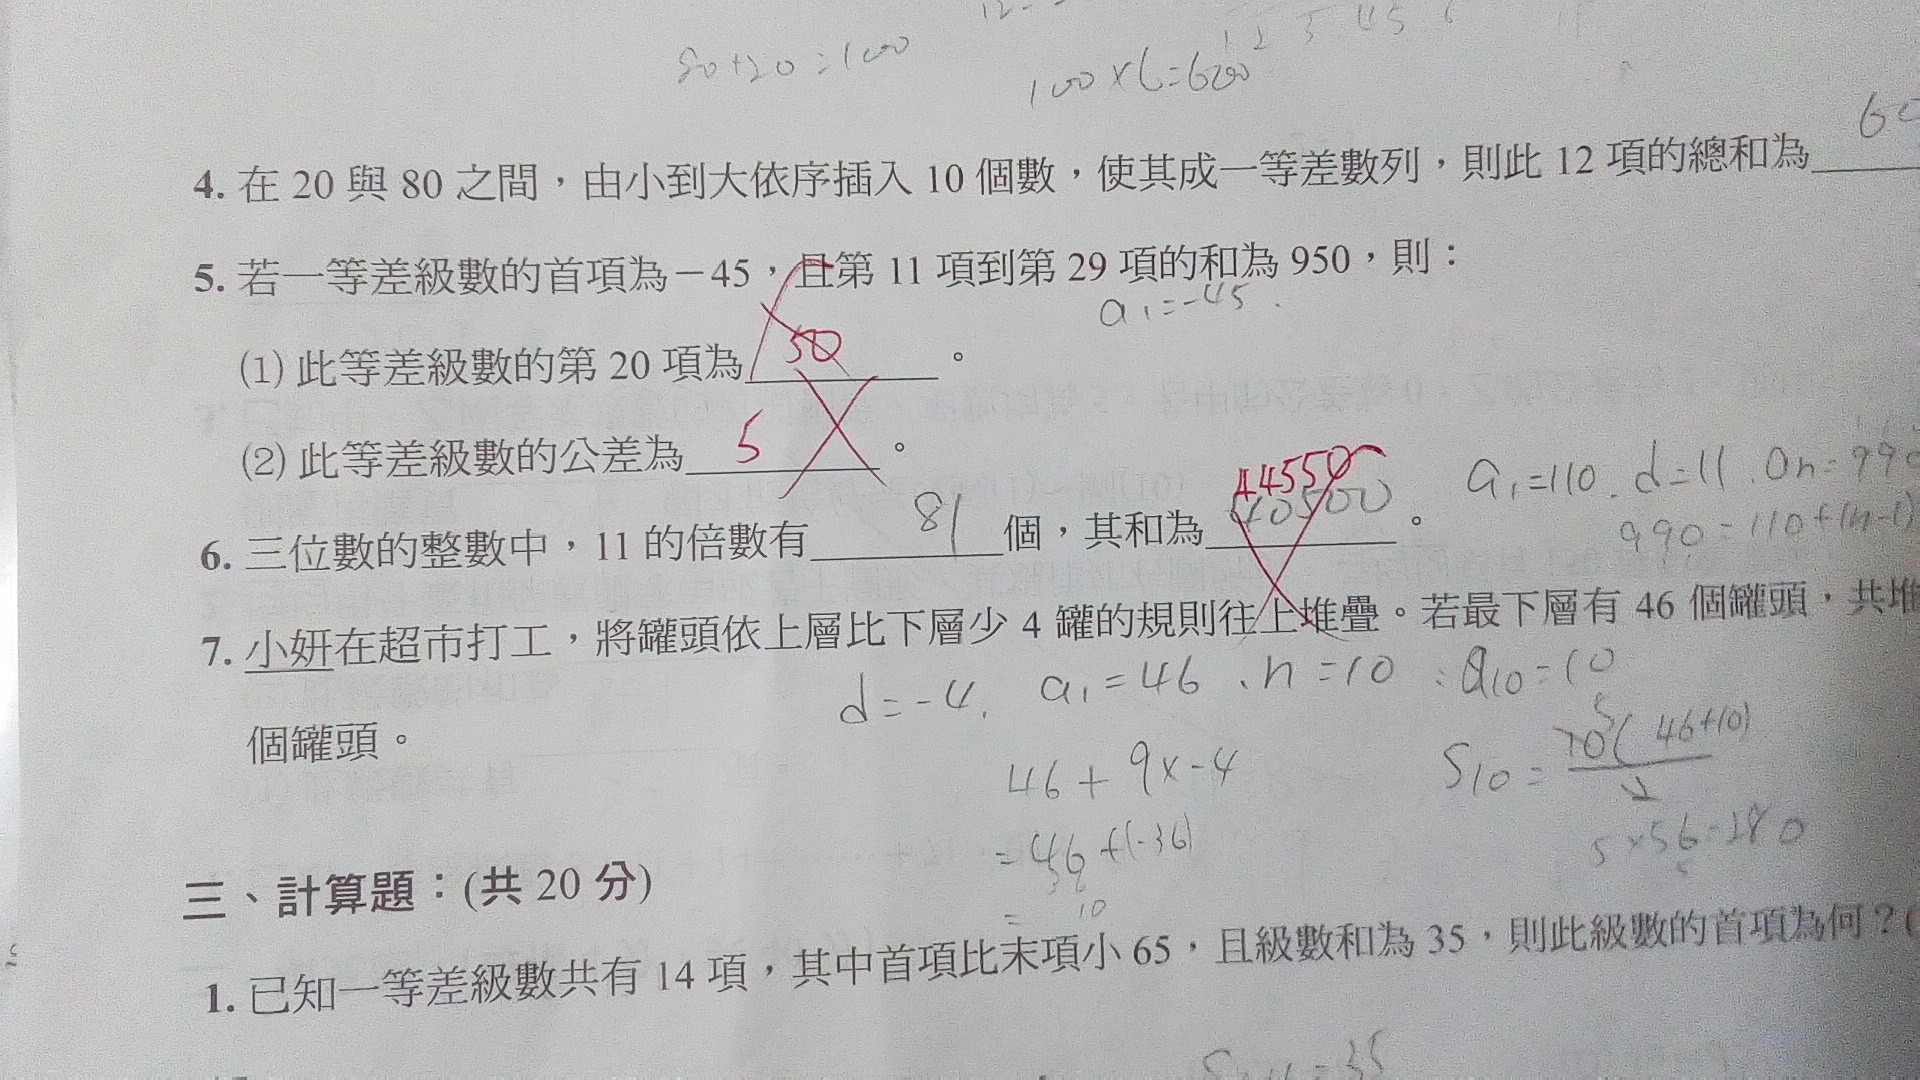 80+20=100
100×6=600
1 2 3 4 5 6
60
4. 在 20 與 80 之間，由小到大依序插入 10 個數，使其成一等差數列，則此 12 項的總和為
5. 若一等差級數的首項為－45，且第 11 項到第 29 項的和為 950，則：
a₁=-45
(1) 此等差級數的第 20 項為 50 。
(2) 此等差級數的公差為 5 。
44550
a₁=110. d=11. an=990
6. 三位數的整數中，11 的倍數有 81 個，其和為 40500 。
990=110+(n-1)
7. 小妍在超市打工，將罐頭依上層比下層少 4 罐的規則往上堆疊。若最下層有 46 個罐頭，共堆
d=-4. a₁=46 、n=10 : a₁₀=10
個罐頭。
46+9×-4
S₁₀=10(46+10)/2
=46+(-36)
5×56=280
= 10
三、計算題：(共 20 分)
1. 已知一等差級數共有 14 項，其中首項比末項小 65，且級數和為 35，則此級數的首項為何？(
=35